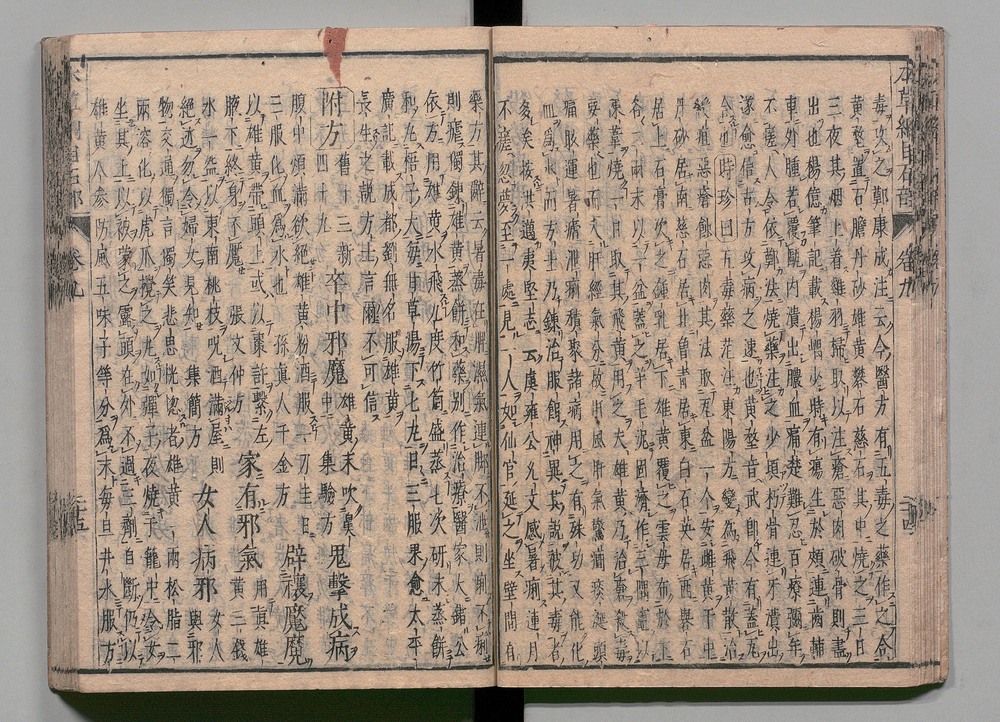 本草綱目石部 卷九
毒攻之鄭康成注云今醫方有五毒之藥作之合
黃堥置石膽丹砂雄黃礬石慈石其中燒之三日
三夜其烟上着雞羽掃取以注瘡惡肉破骨則盡
出也楊億筆記載楊嵎少時有瘍生於頰連齒輔
車外腫若覆甌內潰出膿血痛楚難忍百療彌年
不瘥人令依鄭法燒藥注之少頃朽骨連牙潰出
遂愈信古方攻病之速也黃堥音武即今有蓋瓦
合也時珍曰五毒藥范汪東陽方變為飛黃散治
緩疽惡瘡蝕惡肉其法取瓦盆一个安雌黃于中
丹砂居南慈石居北曾青居東白石英居西礬石
居上石膏次之鍾乳居下雄黃覆之雲母布於下
各二兩末以一盆蓋之羊毛泥固濟作三隅竈以
陳葦燒一日取其飛黃用之夫雄黃乃治瘡殺毒
要藥也而入肝經氣分故肝風肝氣驚癇痰涎頭
痛眩運暑瘧泄痢積聚諸病用之有殊功又能化
血爲水而方士乃鍊治服餌神異其說被其毒者
多矣按洪邁夷堅志云虞雍公允文感暑痢連月
不瘥忽夢至一處見一人如仙官延之坐壁間有
藥方其辭云暑毒在脾濕氣連脚不泄則痢不痢
則瘧獨鍊雄黃蒸餅和藥別作治療醫家大錯公
依方用雄黃水飛九度竹筒盛蒸七次研末蒸餅
和丸梧子大每甘草湯下七丸日三服果愈太平
廣記載成都劉無名服雄黃
長生之說方士言爾不可信
附方舊十三新四十九 卒中邪魔雄黃末吹鼻中集驗方 鬼擊成病
腹中煩滿欲絕雄黃粉酒服一刀圭日
三服化血爲水也孫真人千金方 辟禳魘魔
以雄黃帶頭上或以棗許繫左
腋下終身不魘張文仲方 家有邪氣用真雄黃三錢
水一盌以東南桃枝呪洒滿屋則
絕迹勿令婦女見知集簡方 女人病邪女人與邪
物交通獨言獨笑悲思恍惚者雄黃一兩松脂二
兩溶化以虎爪攪之丸如彈子夜燒于籠中令女
坐其上以被蒙之露頭在外不過三劑自斷仍以
雄黃人參防風五味子等分爲末每旦井水服方
卷九